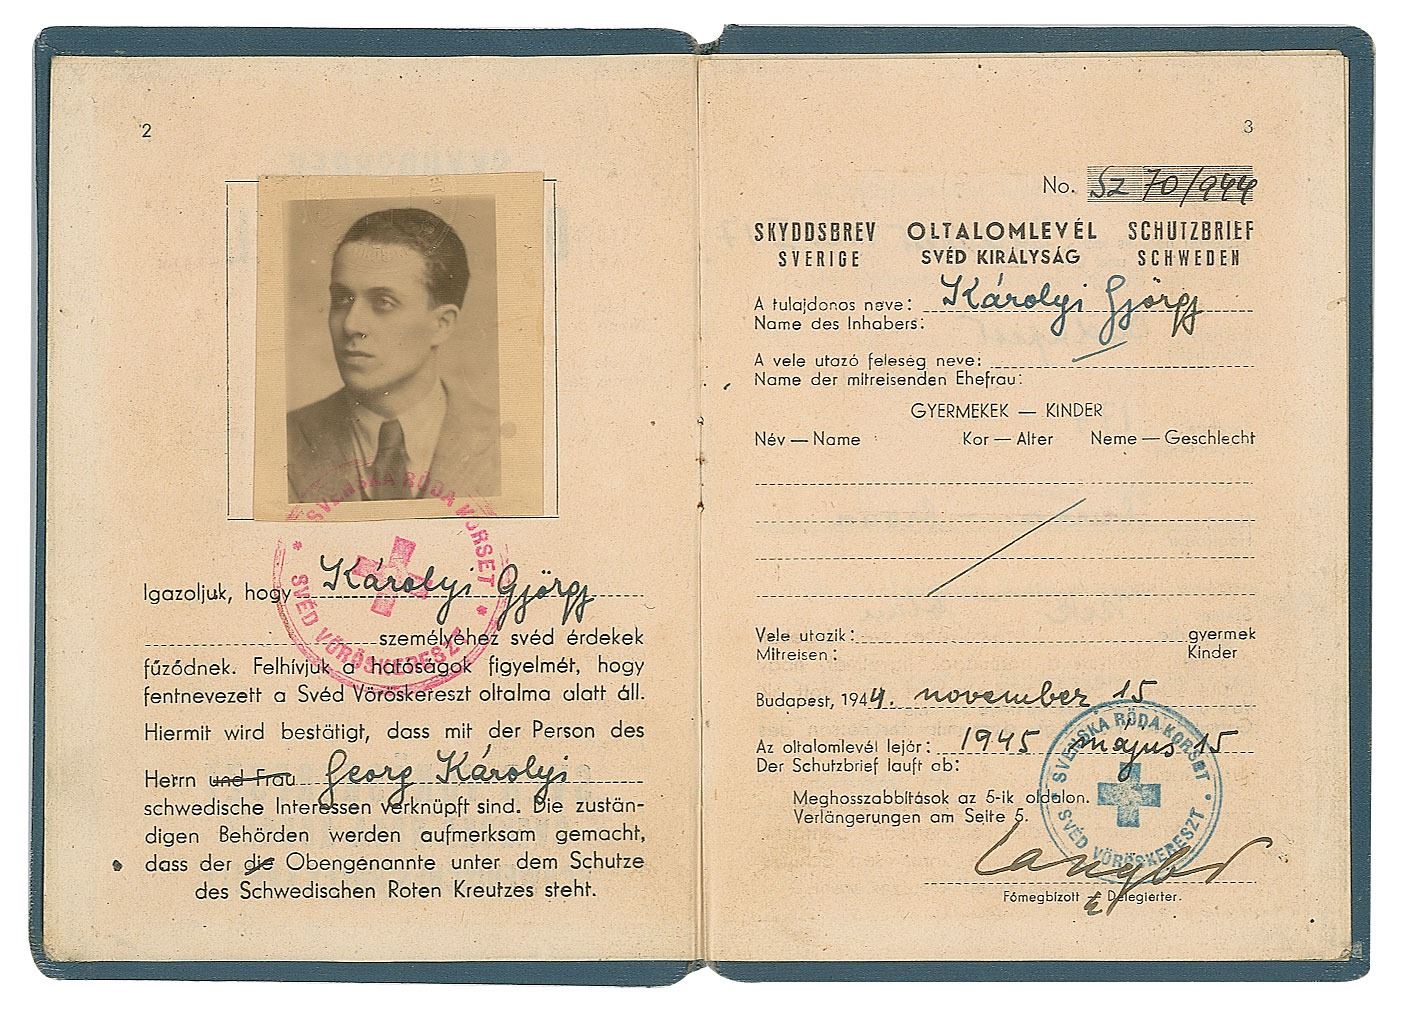 2
SVENSKA RÖDA KORSET
SVÉD VÖRÖSKERESZT
Igazoljuk, hogy Károlyi György
személyéhez svéd érdekek
fűződnek. Felhívjuk a hatóságok figyelmét, hogy
fentnevezett a Svéd Vöröskereszt oltalma alatt áll.
Hiermit wird bestätigt, dass mit der Person des
Herrn und Frau Georg Károlyi
schwedische Interessen verknüpft sind. Die zustän-
digen Behörden werden aufmerksam gemacht,
dass der die Obengenannte unter dem Schutze
des Schwedischen Roten Kreutzes steht.
3
No. Sz 70/944
SKYDDSBREV OLTALOMLEVÉL SCHUTZBRIEF
SVERIGE SVÉD KIRÁLYSÁG SCHWEDEN
A tulajdonos neve: Károlyi György
Name des Inhabers:
A vele utazó feleség neve:
Name der mitreisenden Ehefrau:
GYERMEKEK — KINDER
Név — Name Kor — Alter Neme — Geschlecht
Vele utazik: gyermek
Mitreisen: Kinder
Budapest, 1944. november 15
Az oltalomlevél lejár: 1945 május 15
Der Schutzbrief lauft ab:
Meghosszabbítások az 5-ik oldalon.
Verlängerungen am Seite 5.
SVENSKA RÖDA KORSET
SVÉD VÖRÖSKERESZT
Főmegbízott — Delegierter.